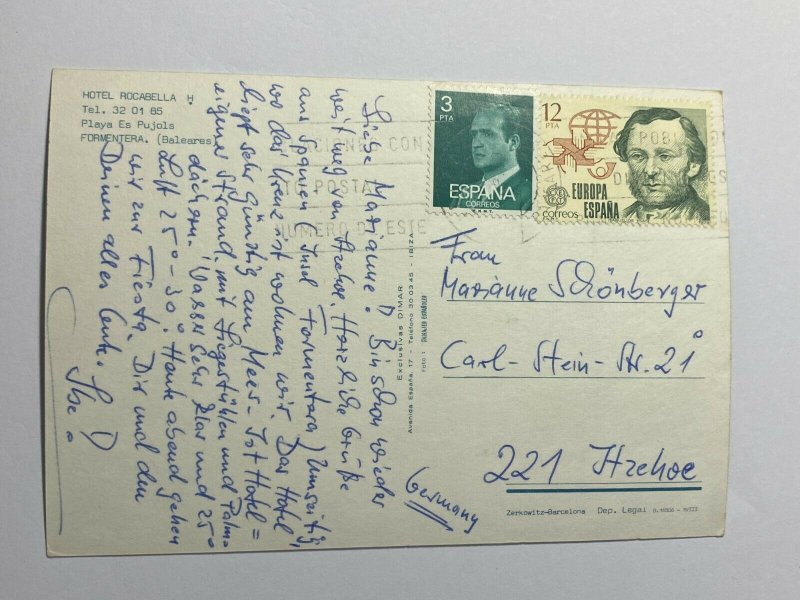 HOTEL ROCABELLA H.
Tel. 32 01 85
Playa Es Pujols
FORMENTERA. (Baleares)
Liebe Marianne! Bin schon wieder
weit weg von Itzehoe. Herzliche Grüße
aus Spanien Insel Formentera, Umseitig
wo das Kreuz ist wohnen wir. Das Hotel
liegt sehr günstig am Meer - Ist Hotel=
eigener Strand mit Liegestühlen und Palm
dächern. Wasser sehr klar und 25°
Luft 25°-30°. Heute abend gehen
wir zur Fiesta. Dir und den
Deinen alles Gute.
Exclusivas DIMAR
Avenida España, 17 - Teléfono 30 03 45 - IBIZA
Foto:
3
PTA
ESPAÑA
CORREOS
12
PTA
EUROPA
ESPAÑA
correos
CON
POSTA
NUMERO D ESTE
POBL
Frau
Marianne Schönberger
Carl-Stein-Str. 21
221 Itzehoe
Germany
Zerkowitz-Barcelona Dep. Legal